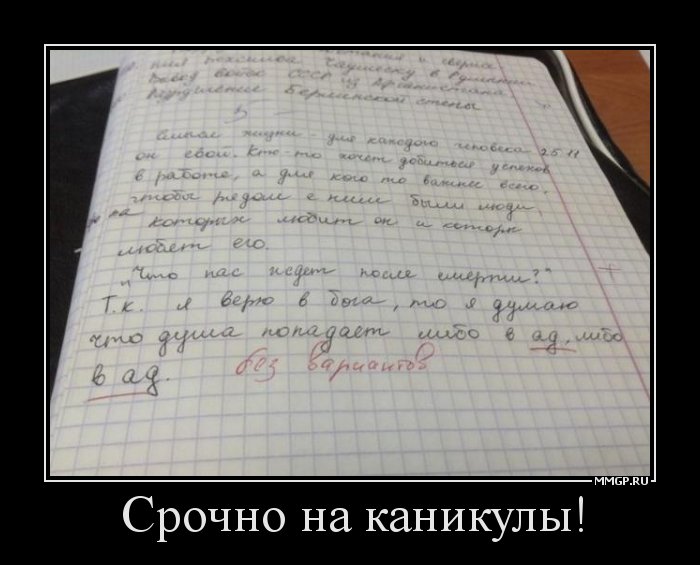 и сверка
Чаушеску в Румынии
Вывод войск СССР из Афганистана
Берлинской стены
Смысл жизни - для каждого человека 25.11
он свой. Кто-то хочет добиться успехов
в работе, а для кого то важнее всего,
чтобы рядом с ним были люди,
которых любит он и которы
любят его.
"Что нас ждет после смерти?"
Т.к. я верю в бога, то я думаю
что душа попадает либо в ад, либо
в ад. без вариантов
MMGP.RU
Срочно на каникулы!